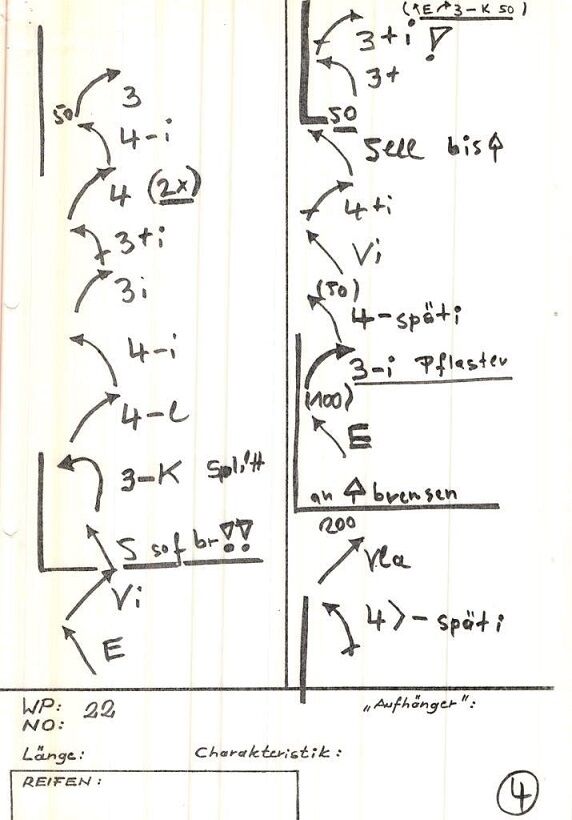 3
50
4-i
4 (2x)
3+i
3i
4-i
4-l
3-K Splitt
5 sof br!!
Vi
E
(E 3-K 50)
3+i !
3+
50
bis
4+i
Vi
(50)
4-späti
3-i Pflaster
(100)
E
an bremsen
200
Vla
4>-späti
WP: 22
NO:
Länge: Charakteristik:
„Aufhänger":
REIFEN:
4